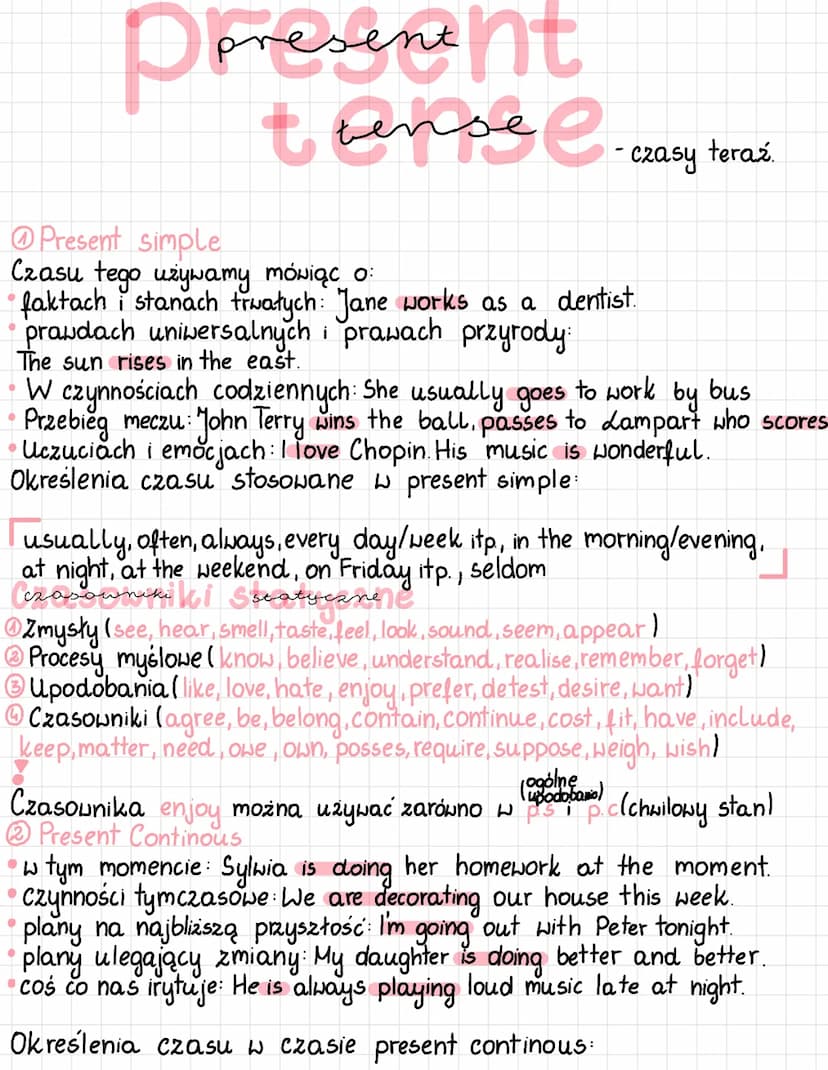 present
tense
- czasy teraź.
① Present simple
Czasu tego używamy mówiąc o:
• faktach i stanach trwałych: Jane works as a dentist.
• prawdach uniwersalnych i prawach przyrody:
The sun rises in the east.
• W czynnościach codziennych: She usually goes to work by bus
• Przebieg meczu: John Terry wins the ball, passes to Lampart who scores
• Uczuciach i emocjach: I love Chopin. His music is wonderful.
Określenia czasu stosowane w present simple:
usually, often, always, every day/week itp., in the morning/evening,
at night, at the weekend, on Friday itp., seldom
Czasowniki statyczne
① Zmysły (see, hear, smell, taste, feel, look, sound, seem, appear)
② Procesy myślowe (know, believe, understand, realise, remember, forget)
③ Upodobania (like, love, hate, enjoy, prefer, detest, desire, want)
④ Czasowniki (agree, be, belong, contain, continue, cost, fit, have, include,
keep, matter, need, owe, own, posses, require, suppose, weigh, wish)
(ogólne
upodobania)
Czasownika enjoy można używać zarówno w p.s i p.c (chwilowy stan)
② Present Continous
• w tym momencie: Sylwia is doing her homework at the moment.
• czynności tymczasowe: We are decorating our house this week.
• plany na najbliższą przyszłość: I'm going out with Peter tonight.
• plany ulegający zmiany: My daughter is doing better and better.
• coś co nas irytuje: He is always playing loud music late at night.
Określenia czasu w czasie present continous: